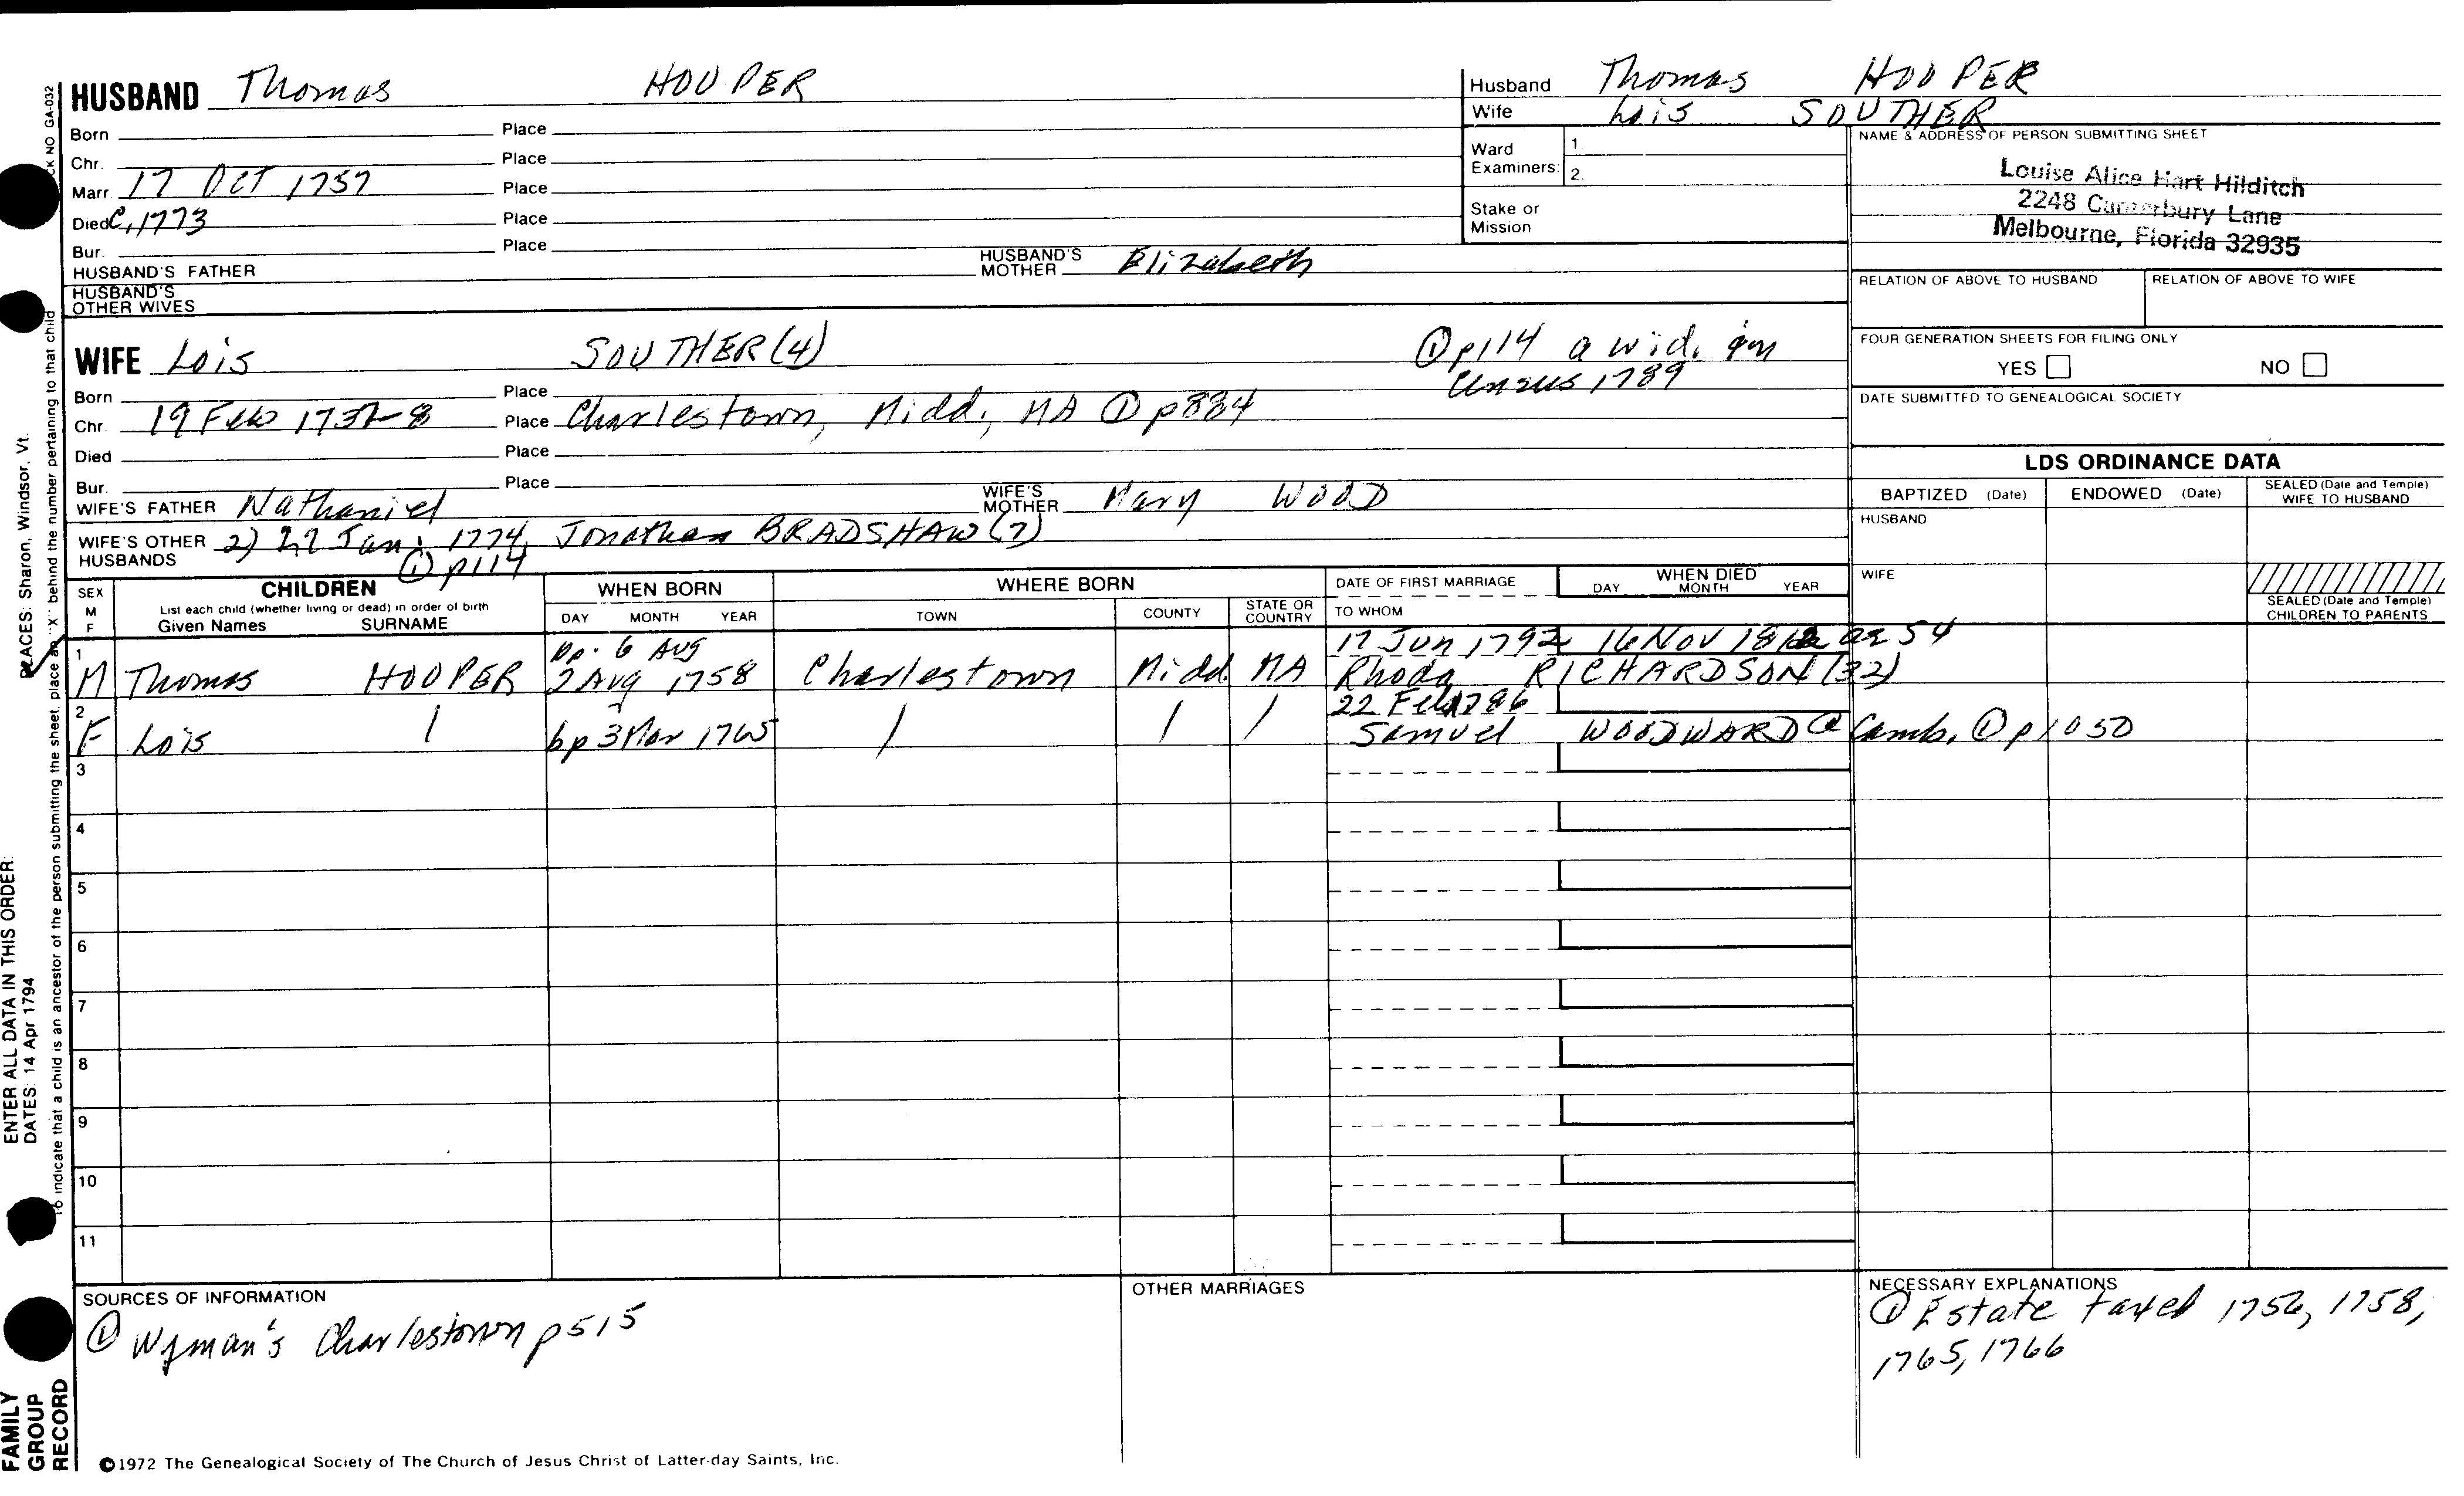 HUSBAND Thomas HOOPER
Born Place
Chr. Place
Marr 17 OCT 1757 Place
Died C, 1773 Place
Bur. Place
HUSBAND'S FATHER HUSBAND'S MOTHER Elizabeth
HUSBAND'S OTHER WIVES
Husband Thomas HOOPER
Wife Lois SOUTHER
Ward Examiners: 1.
2.
Stake or Mission
NAME & ADDRESS OF PERSON SUBMITTING SHEET
Louise Alice Hart Hilditch
2248 Canterbury Lane
Melbourne, Florida 32935
RELATION OF ABOVE TO HUSBAND RELATION OF ABOVE TO WIFE
FOUR GENERATION SHEETS FOR FILING ONLY
YES NO
DATE SUBMITTED TO GENEALOGICAL SOCIETY
WIFE Lois SOUTHER (4) ① p114 a wid. in
Census 1789
Born Place
Chr. 19 Feb 1737-8 Place Charlestown, Midd, MA ① p884
Died Place
Bur. Place
WIFE'S FATHER Nathaniel WIFE'S MOTHER Mary WOOD
WIFE'S OTHER HUSBANDS 2) 27 Jan. 1774, Jonathan BRADSHAW (7)
① p114
LDS ORDINANCE DATA
BAPTIZED (Date) ENDOWED (Date) SEALED (Date and Temple) WIFE TO HUSBAND
HUSBAND
WIFE
SEALED (Date and Temple) CHILDREN TO PARENTS
SEX M F
CHILDREN
List each child (whether living or dead) in order of birth
Given Names SURNAME
WHEN BORN
DAY MONTH YEAR
WHERE BORN
TOWN COUNTY STATE OR COUNTRY
DATE OF FIRST MARRIAGE
TO WHOM
WHEN DIED
DAY MONTH YEAR
1 bp. 6 Aug 17 Jun 1792 16 Nov 1812 ae 54
M Thomas HOOPER 2 Aug 1758 Charlestown Midd MA Rhoda RICHARDSON (32)
2 22 Feb 1786
F Lois / bp 3 Mar 1765 / / / Samuel WOODWARD @ Camb. ① p1050
3
4
5
6
7
8
9
10
11
SOURCES OF INFORMATION
① Wyman's Charlestown p515
OTHER MARRIAGES
NECESSARY EXPLANATIONS
① Estate taxed 1756, 1758,
1765, 1766
©1972 The Genealogical Society of The Church of Jesus Christ of Latter-day Saints, Inc.
CK NO GA-032
To indicate that a child is an ancestor of the person submitting the sheet, place an "X" behind the number pertaining to that child
ENTER ALL DATA IN THIS ORDER:
DATES: 14 Apr 1794
PLACES: Sharon, Windsor, Vt.
FAMILY
GROUP
RECORD